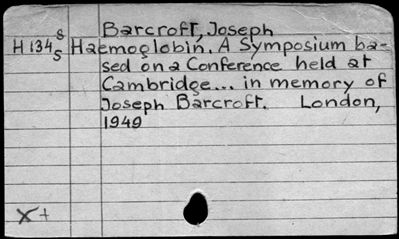 Barcroft, Joseph
H 134 8/5 Haemoglobin. A Symposium ba-
sed on a Conference held at
Cambridge... in memory of
Joseph Barcroft. London,
1949
X+